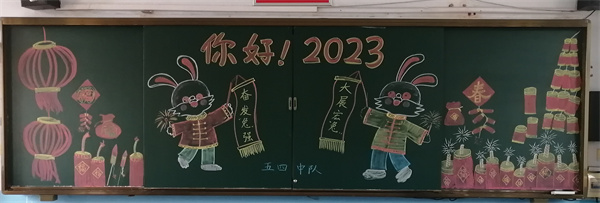 你好！2023
奋发兔强
大展宏兔
春
五四中队